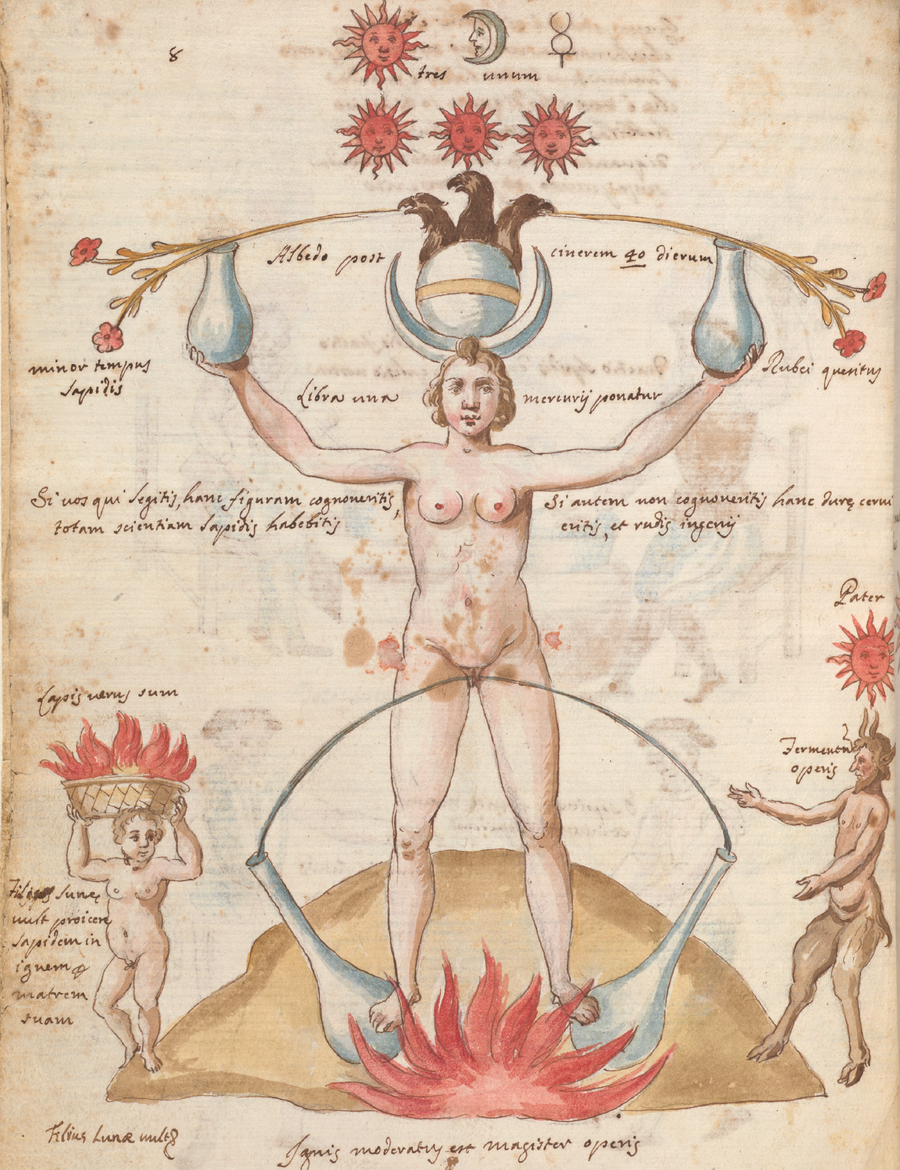 8
tres unum
Albedo post cinerem 40 dierum
minor tempus
lapidis
Rubei queritus
Libra una mercurij ponatur
Si vos qui legitis, hanc figuram cognoveritis,
totam scientiam lapidis habebitis
Si autem non cognoveritis hanc durę cervi
eritis, et rudis ingenij
Pater
Lapis verus sum
Fermentū
operis
lunę
vult proicere
lapidem in
ignem
matrem
suam
Filius Lunæ vult
Ignis moderatus est magister operis